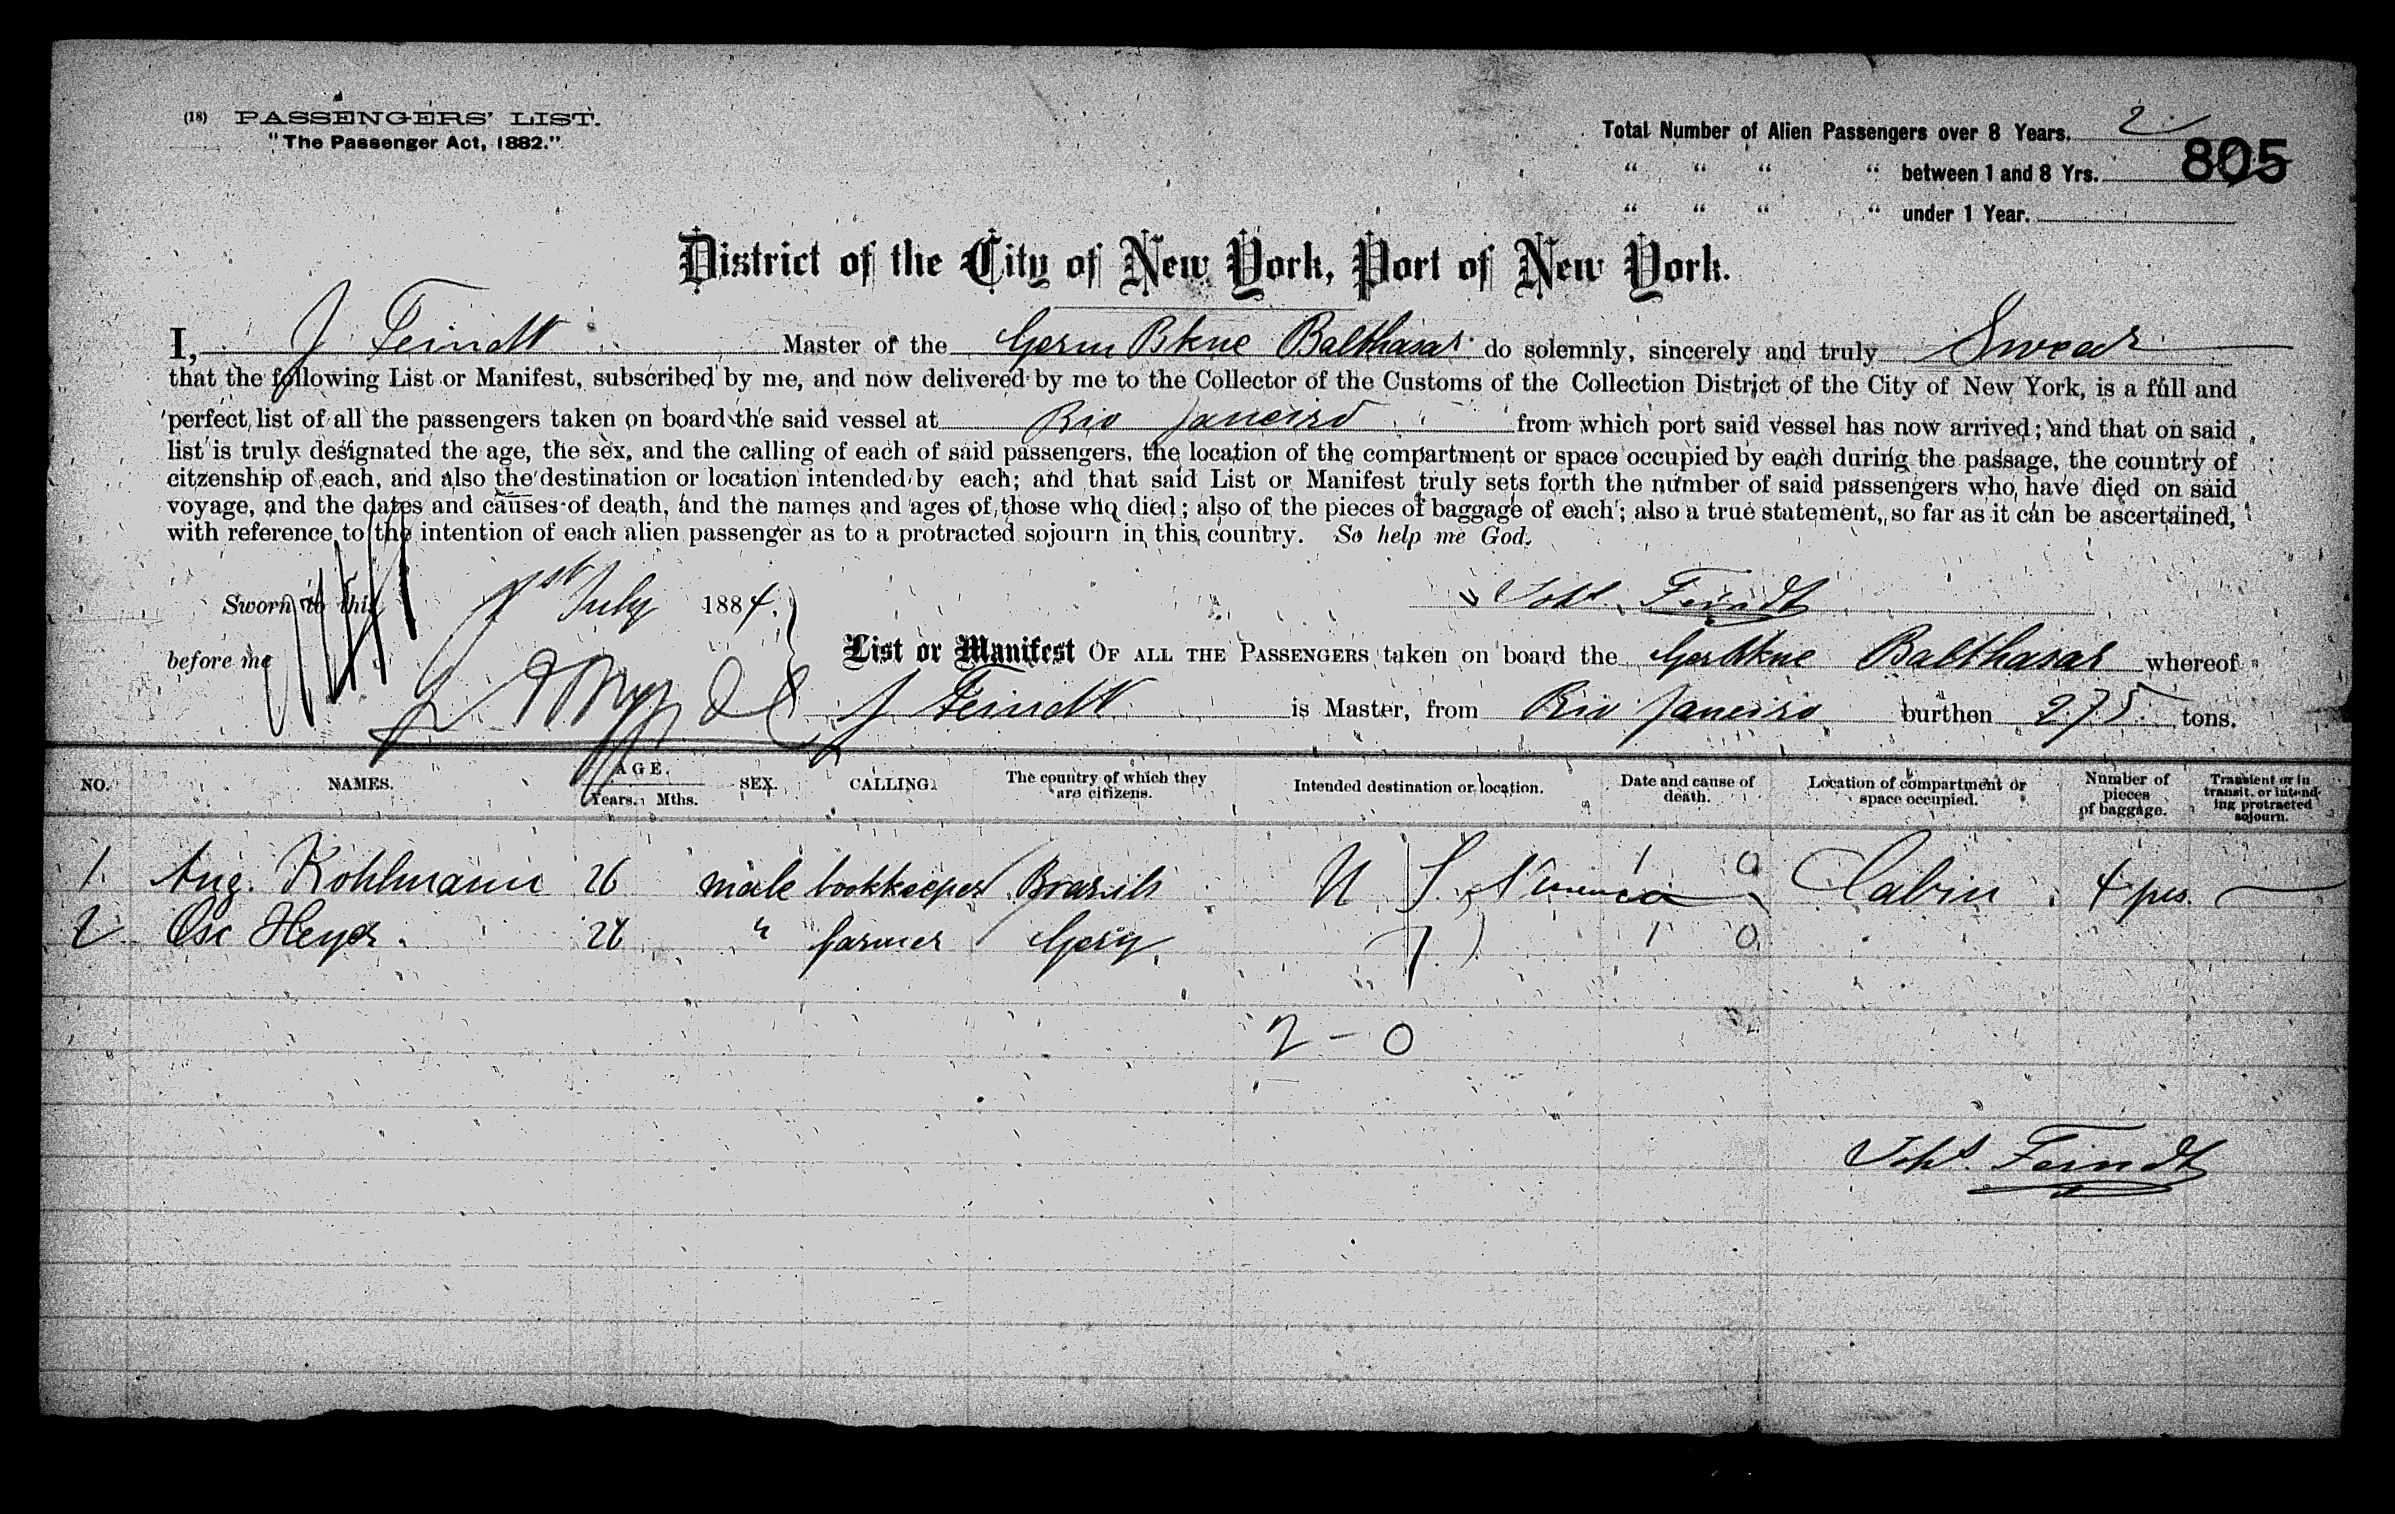 (18) PASSENGERS' LIST.
"The Passenger Act, 1882."
Total Number of Alien Passengers over 8 Years. 2
805
" " " " between 1 and 8 Yrs.
" " " " under 1 Year.
District of the City of New York, Port of New York.
I, J Feindt Master of the Germ Bkne Balthasar do solemnly, sincerely and truly Swear
that the following List or Manifest, subscribed by me, and now delivered by me to the Collector of the Customs of the Collection District of the City of New York, is a full and
perfect list of all the passengers taken on board the said vessel at Rio Janeiro from which port said vessel has now arrived; and that on said
list is truly designated the age, the sex, and the calling of each of said passengers, the location of the compartment or space occupied by each during the passage, the country of
citzenship of each, and also the destination or location intended by each; and that said List or Manifest truly sets forth the number of said passengers who have died on said
voyage, and the dates and causes of death, and the names and ages of those who died; also of the pieces of baggage of each; also a true statement, so far as it can be ascertained,
with reference to the intention of each alien passenger as to a protracted sojourn in this country. So help me God.
Sworn to this 1st July 1884. Joh's. Feindt
before me
List or Manifest OF ALL THE PASSENGERS taken on board the Ger Bkne Balthasar whereof
J Feindt is Master, from Rio Janeiro burthen 275 tons.
NO. NAMES. AGE. Years. Mths. SEX. CALLING. The country of which they are citizens. Intended destination or location. Date and cause of death. Location of compartment or space occupied. Number of pieces of baggage. Transient or in transit, or intending protracted sojourn.
1. Aug. Kohlmann 26 male bookkeeper Brasils U S. America 1 0 Cabin 4 pcs.
2 Osc Heyer. 26 " farmer Gery 1 0
2 - 0
Joh's. Feindt